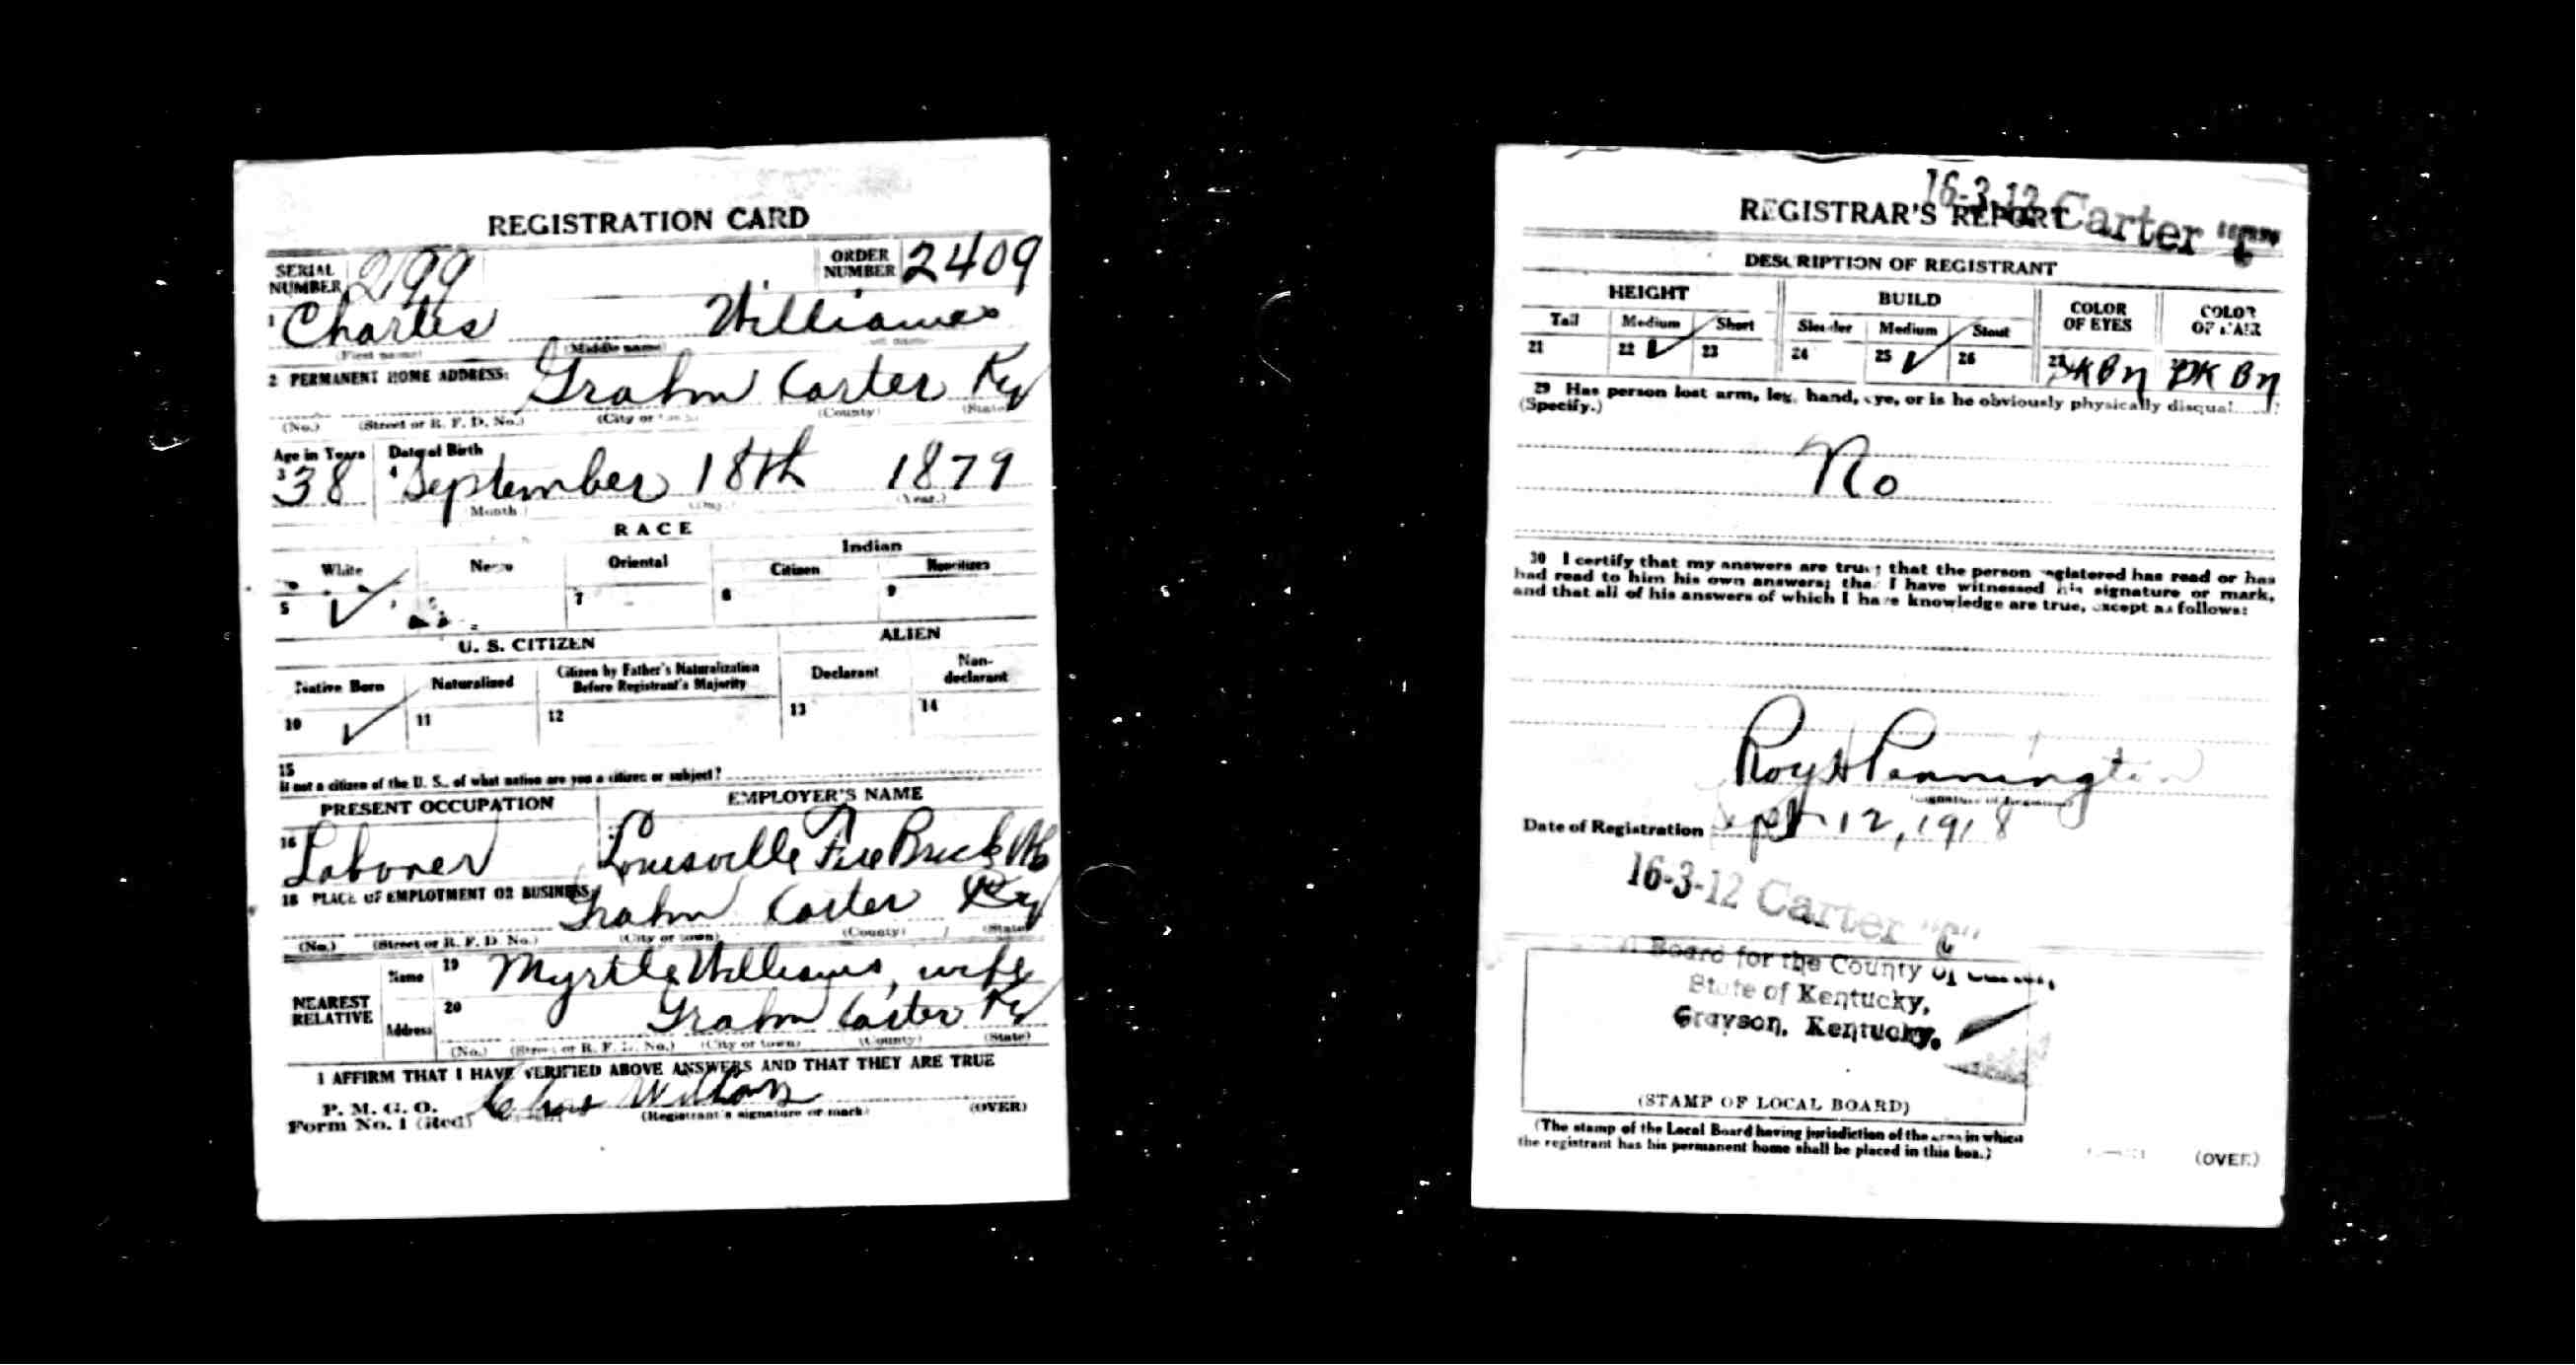 REGISTRATION CARD
SERIAL NUMBER 299 ORDER NUMBER 2409
1 Charles Williams
(First name) (Middle name)
2 PERMANENT HOME ADDRESS: Grahn Carter Ky
(No.) (Street or R. F. D. No.) (City or (County) (State)
Age in Years Date of Birth
3 38 4 September 18th 1879
Month (Year.)
RACE
White Negro Oriental Indian
Citizen Noncitizen
5 ✓ 7 8 9
U. S. CITIZEN ALIEN
Native Born Naturalized Citizen by Father's Naturalization Before Registrant's Majority Declarant Non-declarant
10 ✓ 11 12 13 14
15
If not a citizen of the U. S., of what nation are you a citizen or subject?
PRESENT OCCUPATION EMPLOYER'S NAME
16 Laborer Louisville Fire Brick
18 PLACE OF EMPLOYMENT OR BUSINESS: Grahn Carter Ky
(No.) (Street or R. F. D. No.) (City or town) (County) (State)
NEAREST RELATIVE
Name 19 Myrtle Williams, wife
Address 20 Grahn Carter Ky
(No.) (Street or R. F. D. No.) (City or town) (County) (State)
I AFFIRM THAT I HAVE VERIFIED ABOVE ANSWERS AND THAT THEY ARE TRUE
P. M. G. O.
Form No. 1 (Red) Chas
(Registrant's signature or mark) (OVER)
16-3-12 Carter
REGISTRAR'S REPORT
DESCRIPTION OF REGISTRANT
HEIGHT BUILD COLOR OF EYES COLOR OF HAIR
Tall Medium Short Slender Medium Stout
21 22 ✓ 23 24 25 ✓ 26 27 DK Bn DK Bn
29 Has person lost arm, leg, hand, eye, or is he obviously physically
(Specify.)
No
30 I certify that my answers are true; that the person registered has read or has
had read to him his own answers; that I have witnessed his signature or mark,
and that all of his answers of which I have knowledge are true, except as follows:
Roy H Pennington
(Signature of Registrar)
Date of Registration Sept 12, 1918
16-3-12 Carter "C"
Board for the County of
State of Kentucky,
Grayson, Kentucky.
(STAMP OF LOCAL BOARD)
(The stamp of the Local Board having jurisdiction of the area in which
the registrant has his permanent home shall be placed in this box.)
(OVER)